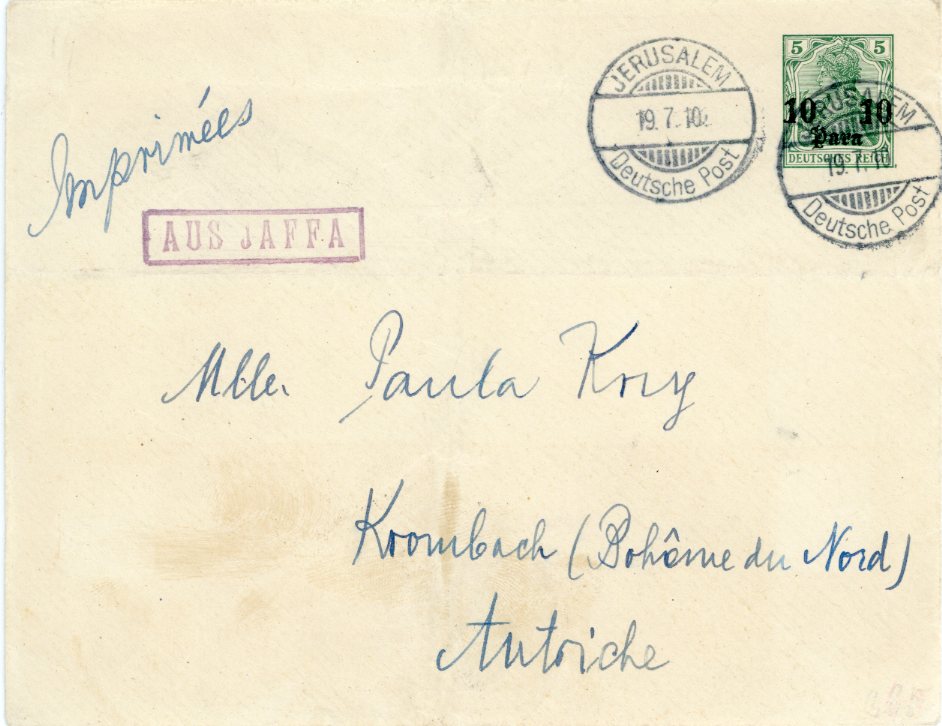 JERUSALEM
19.7.10.
Deutsche Post
5 5
10 10
Para
DEUTSCHES REICH
JERUSALEM
19.7.10.
Deutsche Post
Imprimées
AUS JAFFA
Mlle. Paula
Krombach (Bohême du Nord)
Autriche